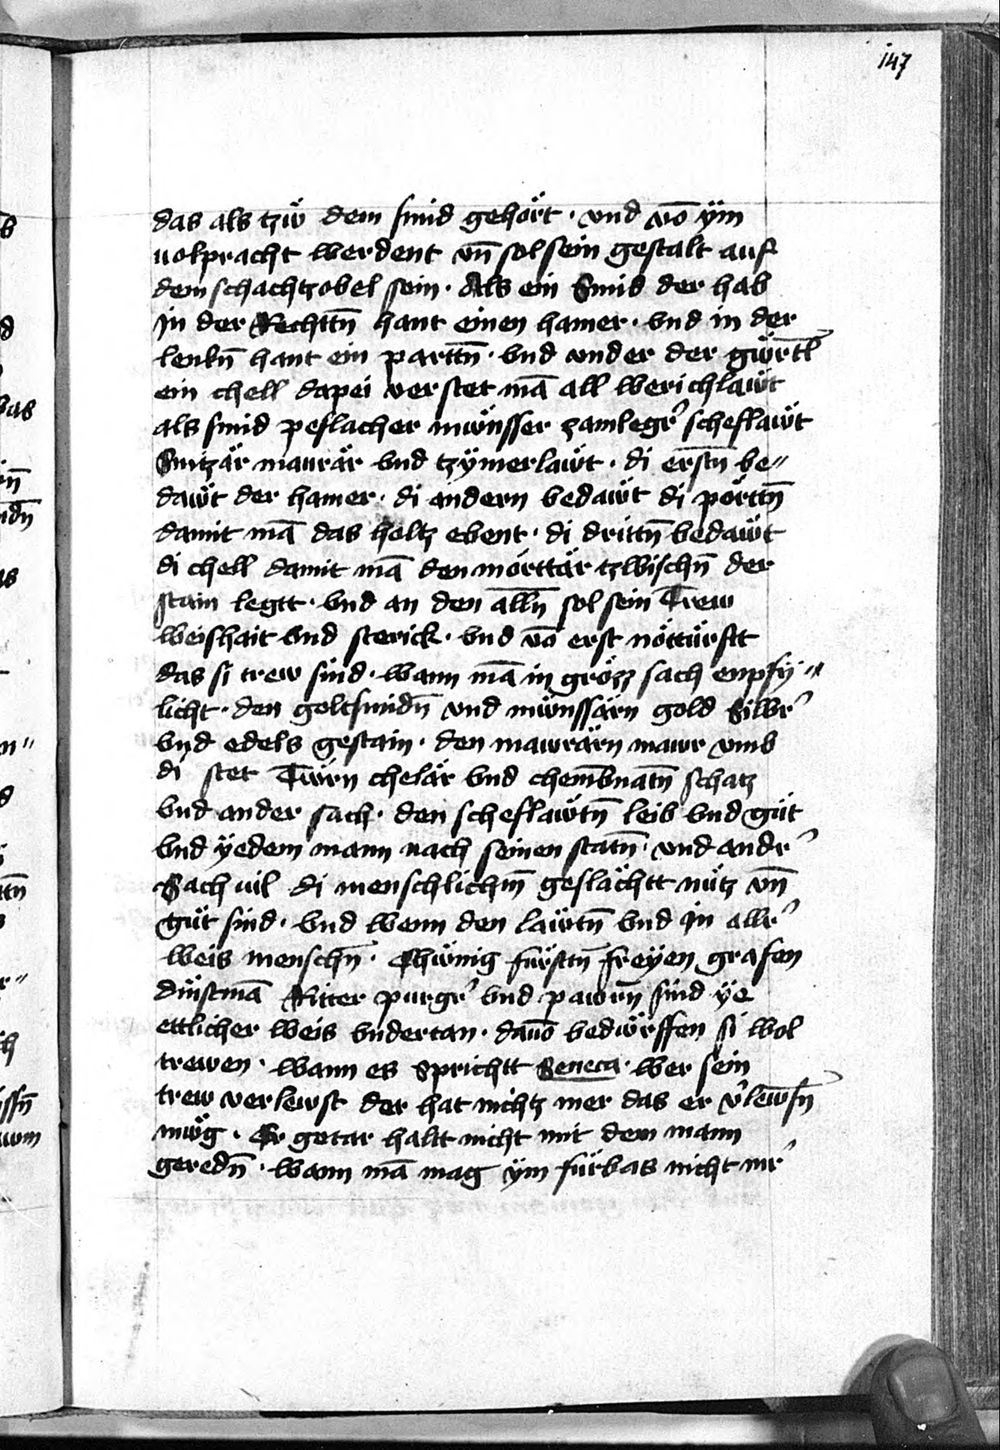 147
das als tzwͤ dem smid gehoͤrt · vnd vō ẏm
uolpracht werdent vn̄ sol sein gestalt auf
dem schachtzobel sein · Als ein Smid der hab
in der Rechttn̄ hant einen hamer · vnd in der
lenkn̄ hant ein parttn̄ · vnd vnder der gwͤrtl̄
ein chell dapei verstet mā all werichlawͤt
als smid peslacher mwͤnsser zamlegr̓ scheflawͤt
Snitzaͤr mauraͤr vnd tzẏmerlawͤt · di erstn̄ be〃
dawͤt der hamer · di andern bedawͤt di poͤrttn̄
damit mā das holtz ebent · di drittn̄ bedawͤt
di chell damit mā den moͤrttaͤr tzwischn̄ der
stain legtt · vnd an den alln̄ sol sein Trew
weishait vnd sterick · vnd vō erst noͤttuͤrfft
das si trew sind · wann mā in groͤzz sach enpfy〃
licht · den goltsmidn̄ vnd mwͤnssaͤrn gold Silbr̓
vnd edels gestain · den mawraͤrn mawr vmb
di stet Twͤrn chelaͤr vnd chem̄bnatn̄ schatz
vnd ander sach · den scheflawͤtn̄ leib vnd guͤt
vnd ẏedem mann nach seinen statn̄ · vnd andr̓
Sach uil di menschlichm̄ geslaͤchtt nuͤtz vn̄
guͤt sind · vnd wenn den lawͤtn̄ vnd in allr̓
weis menschn̄ · Chwͤnig fuͤrsttn̄ freẏen grafen
dinstmā Ritter purgr̓ vnd pawrn̄ sind ẏe
ettlicher weis vndertan · dauō bedwͤrffen si wol
trewen · wann es sprichtt Seneca · wer sein
trew verlewst der hat nichtz mer das er v̓lewsn̄
mwͤg · Er getar haltt nicht mit dem mann
geredn̄ · wann mā mag ẏm fuͤrbas nicht mr̓